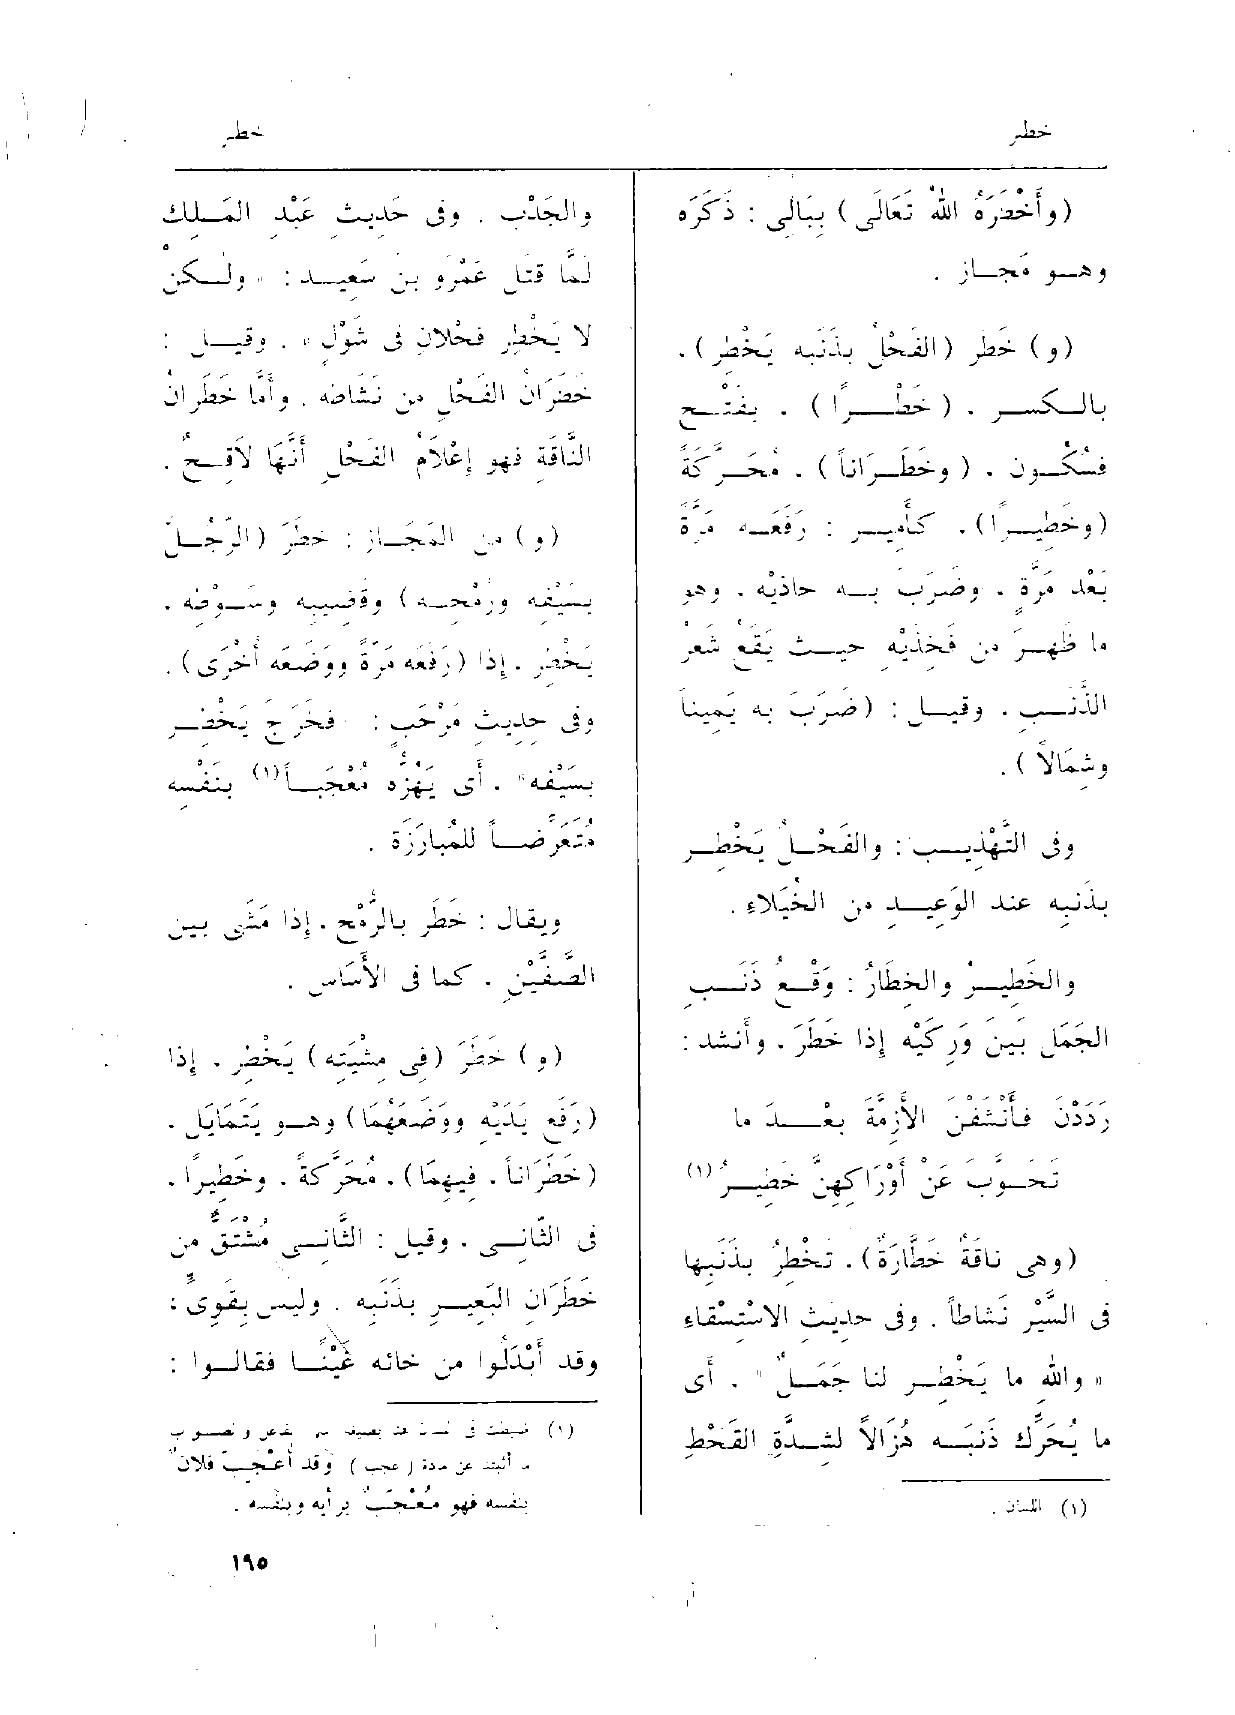 خطر
خطر
(وأَخْطَرَهُ اللهُ تَعَالَى) بِبَالِى : ذَكَرَه
وهـو مَجـاز .
(و) خَطَر (الفَحْلُ بذَنَبِه يَخْطِر) .
بالـكسـر . (خَطْـــرًا) . بفتْـح
فسُكُـون . (وخَطَـرَاناً) . مُحَـرَّكَةً
(وخَطِيـــرًا) . كأَمِيـر : رَفَعَـه مَرَّةً
بَعْد مَرَّةٍ . وضَرَبَ بـه حاذَيْه . وهو
ما ظهـرَ من فَخِذَيْهِ حيـث يَقَعُ شَعْرُ
الذَّنَـبِ . وقيـل : (ضَرَبَ به يَمِيناً
وشِمَالاً) .
وفى التَّهْذِيـب : والفَحْـلُ يَخْطِـر
بذَنَبِه عند الوَعِيـد من الخُيَلاءِ .
والخَطِيـرُ والخِطَارُ : وَقْـعُ ذَنَـبِ
الجَمَل بَيْنَ وَرِكَيْه إِذا خَطَرَ . وأَنشد :
رَدَدْنَ فأَنْشَفْنَ الأَزِمَّةَ بعْـدَ ما
تَحَـوَّبَ عَنْ أَوْرَاكِهِنَّ خَطِيـرُ (١)
(وهى ناقَةٌ خَطَّارَةٌ) . تخْطِرُ بذَنَبِها
فى السَّيْر نَشَاطاً . وفى حديثِ الاسْتِسْقَاءِ
« واللهِ ما يَخْطِـر لنا جَمَـلٌ » . أَى
ما يُحَرِّك ذَنَبَـه هُزَالاً لشِدَّةِ القَحْطِ
(١) اللسان .
والجَدْبِ . وفى حَدِيثِ عَبْدِ المَلِكِ
لَمَّا قَتَل عَمْرَو بنَ سَعِيـد : « ولـكنْ
لا يَخْطِر فَحْلانِ فى شَوْلٍ » . وقيـل :
خَطَرَانُ الفَحْلِ من نَشَاطِه . وأَمّا خَطَرانُ
النَّاقَة فهو إِعْلاَمُ الفَحْلِ أَنَّهَا لاَقِـحٌ .
(و) من المَجَـاز : خطَرَ (الرّجُـلُ
بسَيْفِه ورُمْحِـه) وقَضِيبِه وسَـوْطِه .
يَخْطِر . إِذا (رَفَعَه مَرَّةً ووَضَعَه أُخْرَى) .
وفى حديثِ مَرْحَبٍ : فخَرَجَ يَخْطِـر
بسَيْفِه» . أَى يَهُزُّه مُعْجَبـاً(١) بنَفْسِه
مُتَعَرِّضـاً للمُبارَزَة .
ويقال : خَطَر بالرُّمْحِ . إِذا مَشَى بين
الصَّفَّيْنِ . كما فى الأَسَاس .
(و) خَطَرَ (فى مِشْيَتِه) يَخْطِر . إِذا
(رَفَع يَدَيْهِ ووَضَعَهُمَا) وهـو يَتَمَايَل .
(خَطَرَاناً . فِيهِمَا) . مُحَرَّكةً . وخَطِيرًا .
فى الثَّانِـى . وقيل : الثَّانِـى مُشْتَقّ من
خَطَرَانِ البَعِيـرِ بذَنَبِه . وليس بقَوِىٍّ :
وقد أَبْدَلُوا من خائه غَيْنًـا فقالـوا :
(١)
بنفسه فهو مُعْجَبٌ برأيه وبنفسه .
١٩٥